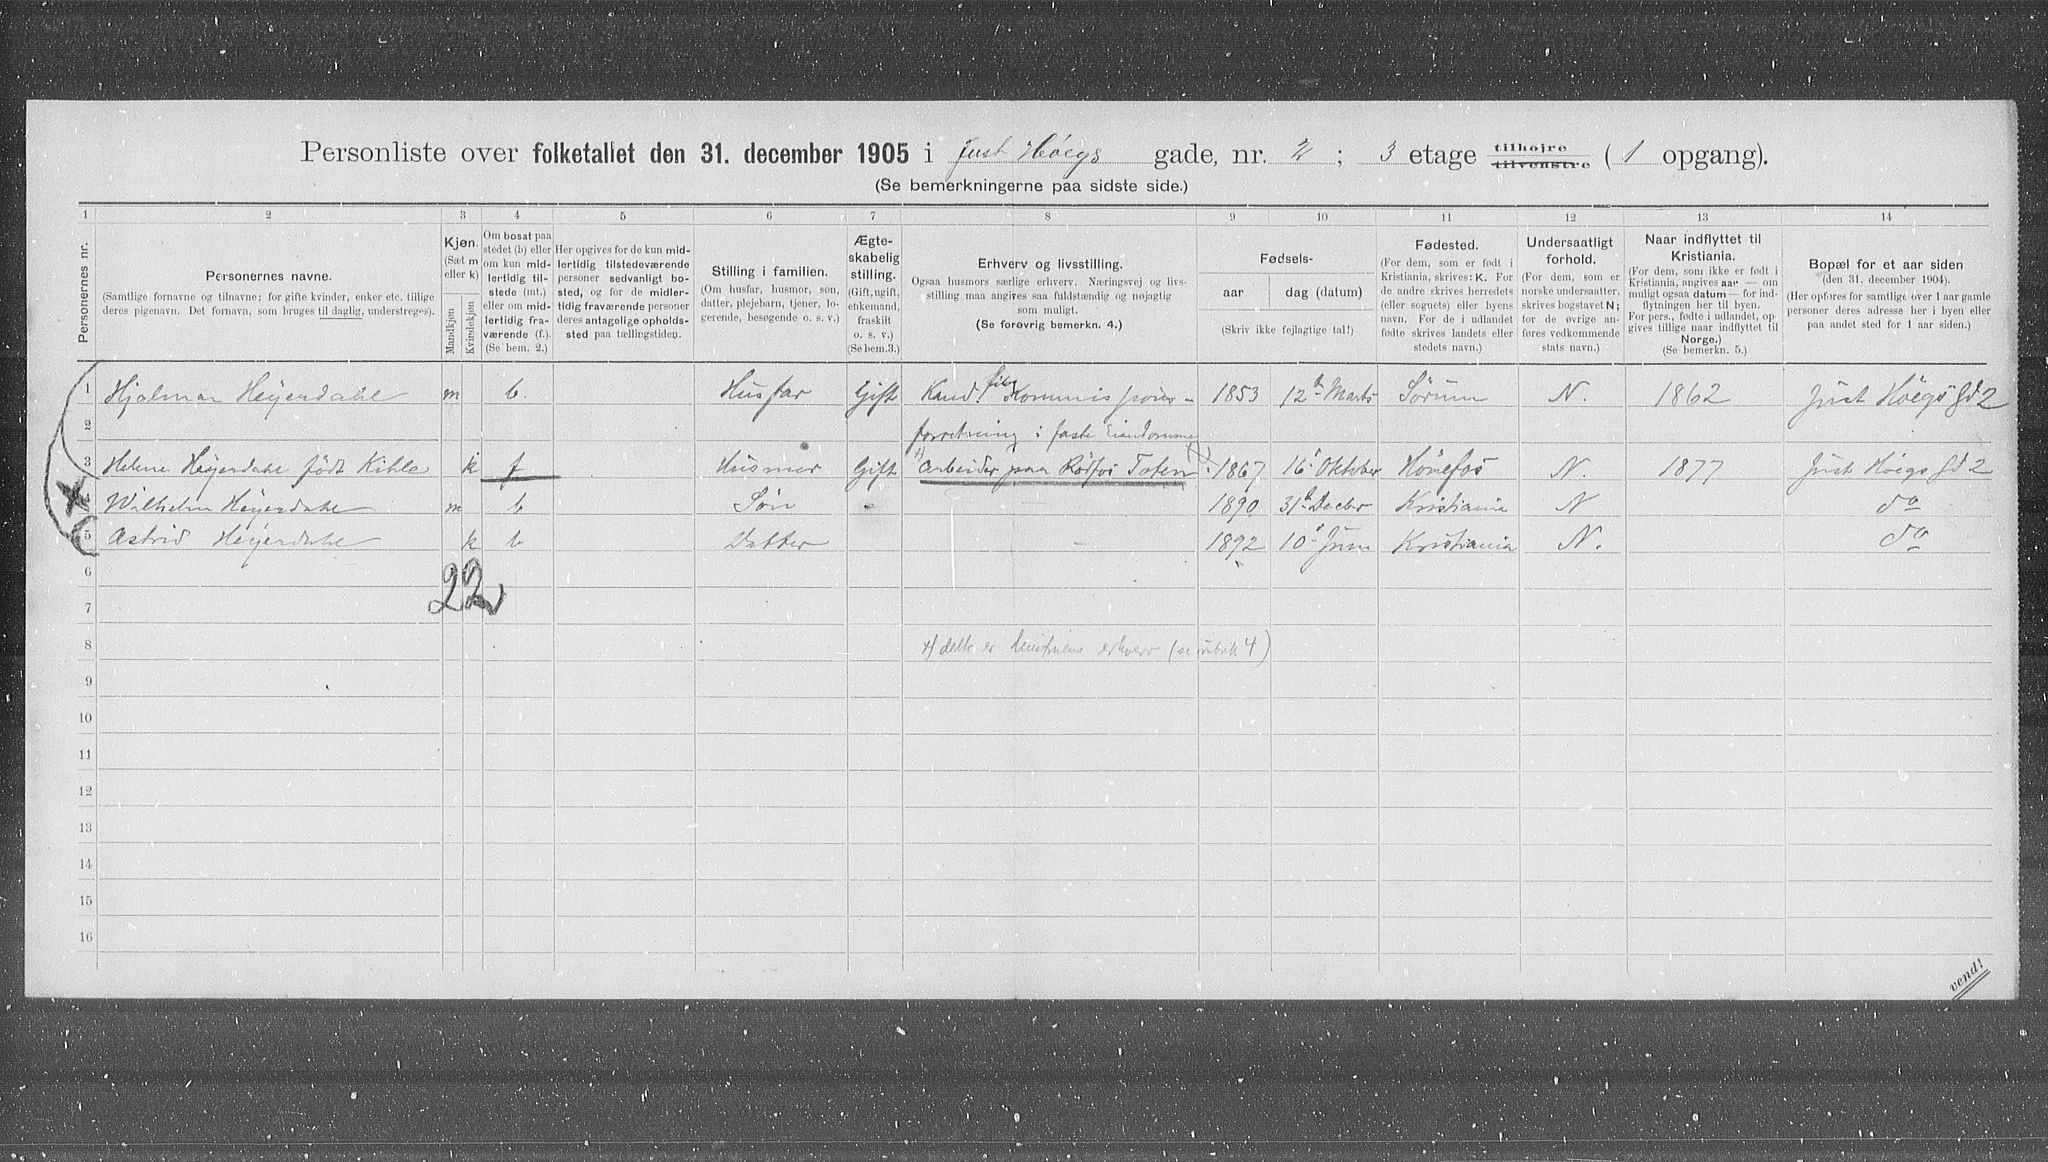 Personliste over folketallet den 31. december 1905 i Just Höegs gade, nr. 2 ; 3 etage tilhøjre tilvenstre ( 1 opgang).
(Se bemerkningerne paa sidste side.)
1 2 3 4 5 6 7 8 9 10 11 12 13 14
Personernes nr.
Personernes navne.
(Samtlige fornavne og tilnavne; for gifte kvinder, enker etc. tillige
deres pigenavn. Det fornavn, som bruges til daglig, understreges).
Kjøn.
(Sæt m
eller k)
Mandkjøn
Kvindekjøn
Om bosat paa
stedet (b) eller
om kun mid-
lertidig til-
stede (mt.)
eller om mid-
lertidig fra-
værende (f.).
(Se bem. 2.)
Her opgives for de kun mid-
lertidig tilstedeværende
personer sedvanligt bo-
sted, og for de midler-
tidig fraværende personer
deres antagelige opholds-
sted paa tællingstiden.
Stilling i familien.
(Om husfar, husmor, søn,
datter, plejebarn, tjener, lo-
gerende, besøgende o. s. v.)
Ægte-
skabelig
stilling.
(Gift, ugift,
enkemand,
fraskilt
o. s. v.)
(Se bem.3.)
Erhverv og livsstilling.
Ogsaa husmors særlige erhverv. Næringsvej og livs-
stilling maa angives saa fuldstændig og nøjagtig
som muligt.
(Se forøvrig bemerkn. 4.)
Fødsels-
aar dag (datum)
(Skriv ikke fejlagtige tal!)
Fødested.
(For dem, som er født i
Kristiania, skrives: K. For
de andre skrives herredets
(eller sognets) eller byens
navn. For de i udlandet
fødte skrives landets eller
stedets navn.)
Undersaatligt
forhold.
(For dem, som er
norske undersaatter,
skrives bogstavet N;
for de øvrige an-
føres vedkommende
stats navn.)
Naar indflyttet til
Kristiania.
(For dem, som ikke er født i
Kristiania, angives aar — om
muligt ogsaa datum — for ind-
flytningen her til byen.
For pers., fødte i udlandet, op-
gives tillige naar indflyttet til
Norge.)
(Se bemerkn. 5.)
Bopæl for et aar siden
(den 31. december 1904).
(Her opføres for samtlige over 1 aar gamle
personer deres adresse her i byen eller
paa andet sted for 1 aar siden.)
1 Hjalmar Heyerdahl m b. Husfar Gift Kand. filos Kommissions- 1853 12te Marts Sørum N. 1862 Just Höegs Gd 2
2 forretning i faste Eiendomme
3 Helene Heyerdahl födt Kihle k f Husmor Gift +) Arbeider paa Rødfos Toten 1867 16 Oktober Hönefos N. 1877 Just Höegs Gd 2
4 Wilhelm Heyerdahl m b Sön - 1890 31te Decbr Kristiania N do
5 Astrid Heyerdahl k b Datter - 1892 10 Juni Kristiania N. do
6
22
7
8 +) dette er husfruens erhverv (se rubrik 4)
9
10
11
12
13
14
15
16
vend!